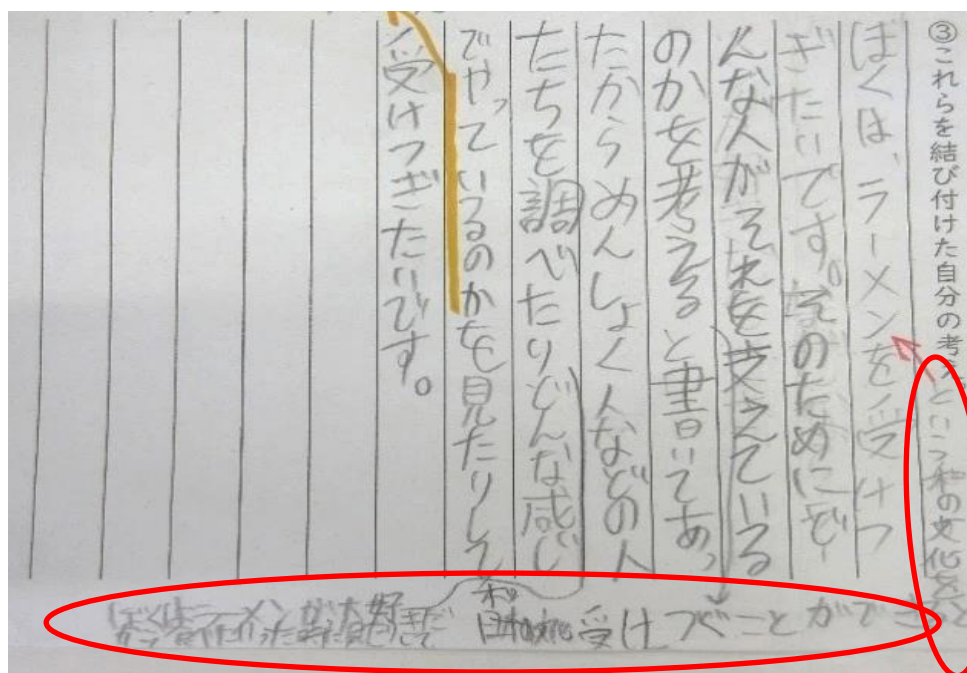 ③これらを結び付けた自分の考え
という和の文化を
ぼくは、ラーメンを受けつ
ぎたいです。そのためにど
んな人がそれを支えている
のかを考えると書いてあっ
たからめんしょく人などの人
たちを調べたりどんな感じ
でやっているのかを見たりして
受けつぎたいです。
和
受けつぐことができ
ぼくはラーメンが大好きだ